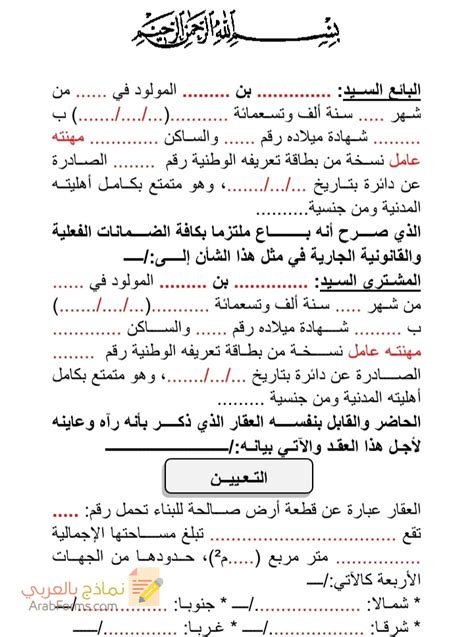 بسم الله الرحمن الرحيم
البائع السيد: ............... بن .......... المولود في ...... من
شهر ..... سنة ألف وتسعمائة ...........(.../.../.......) ب
......... شهادة ميلاده رقم ...... والساكن ............. مهنته
عامل نسخة من بطاقة تعريفه الوطنية رقم ........ الصادرة
عن دائرة بتاريخ .../.../.......، وهو متمتع بكامل أهليته
المدنية ومن جنسية..........
الذي صرح أنه بـاع ملتزما بكافة الضمانات الفعلية
والقانونية الجارية في مثل هذا الشأن إلى:/ـــ
المشتري السيد: ............... بن .......... المولود في ......
من شهر ..... سنة ألف وتسعمائة ...........(.../.../.......)
ب ......... شهادة ميلاده رقم ...... والساكن .............
مهنته عامل نسخة من بطاقة تعريفه الوطنية رقم ........
الصادرة عن دائرة بتاريخ .../.../.......، وهو متمتع بكامل
أهليته المدنية ومن جنسية .........
الحاضر والقابل بنفسه العقار الذي ذكر بأنه رآه وعاينه
لأجل هذا العقد والآتي بيانه:/ــــــــــــ
التعيين
العقار عبارة عن قطعة أرض صالحة للبناء تحمل رقم: .....
تقع ................................ تبلغ مساحتها الإجمالية
................ متر مربع (.....م²)، حدودها من الجهات
الأربعة كالآتي:/ـــ
* شمالا: ............/ـــ * جنوبا: ............/ـــ
* شرقا: ............/ـــ * غربا: ............/ــــ
نماذج بالعربي
ArabForms.com